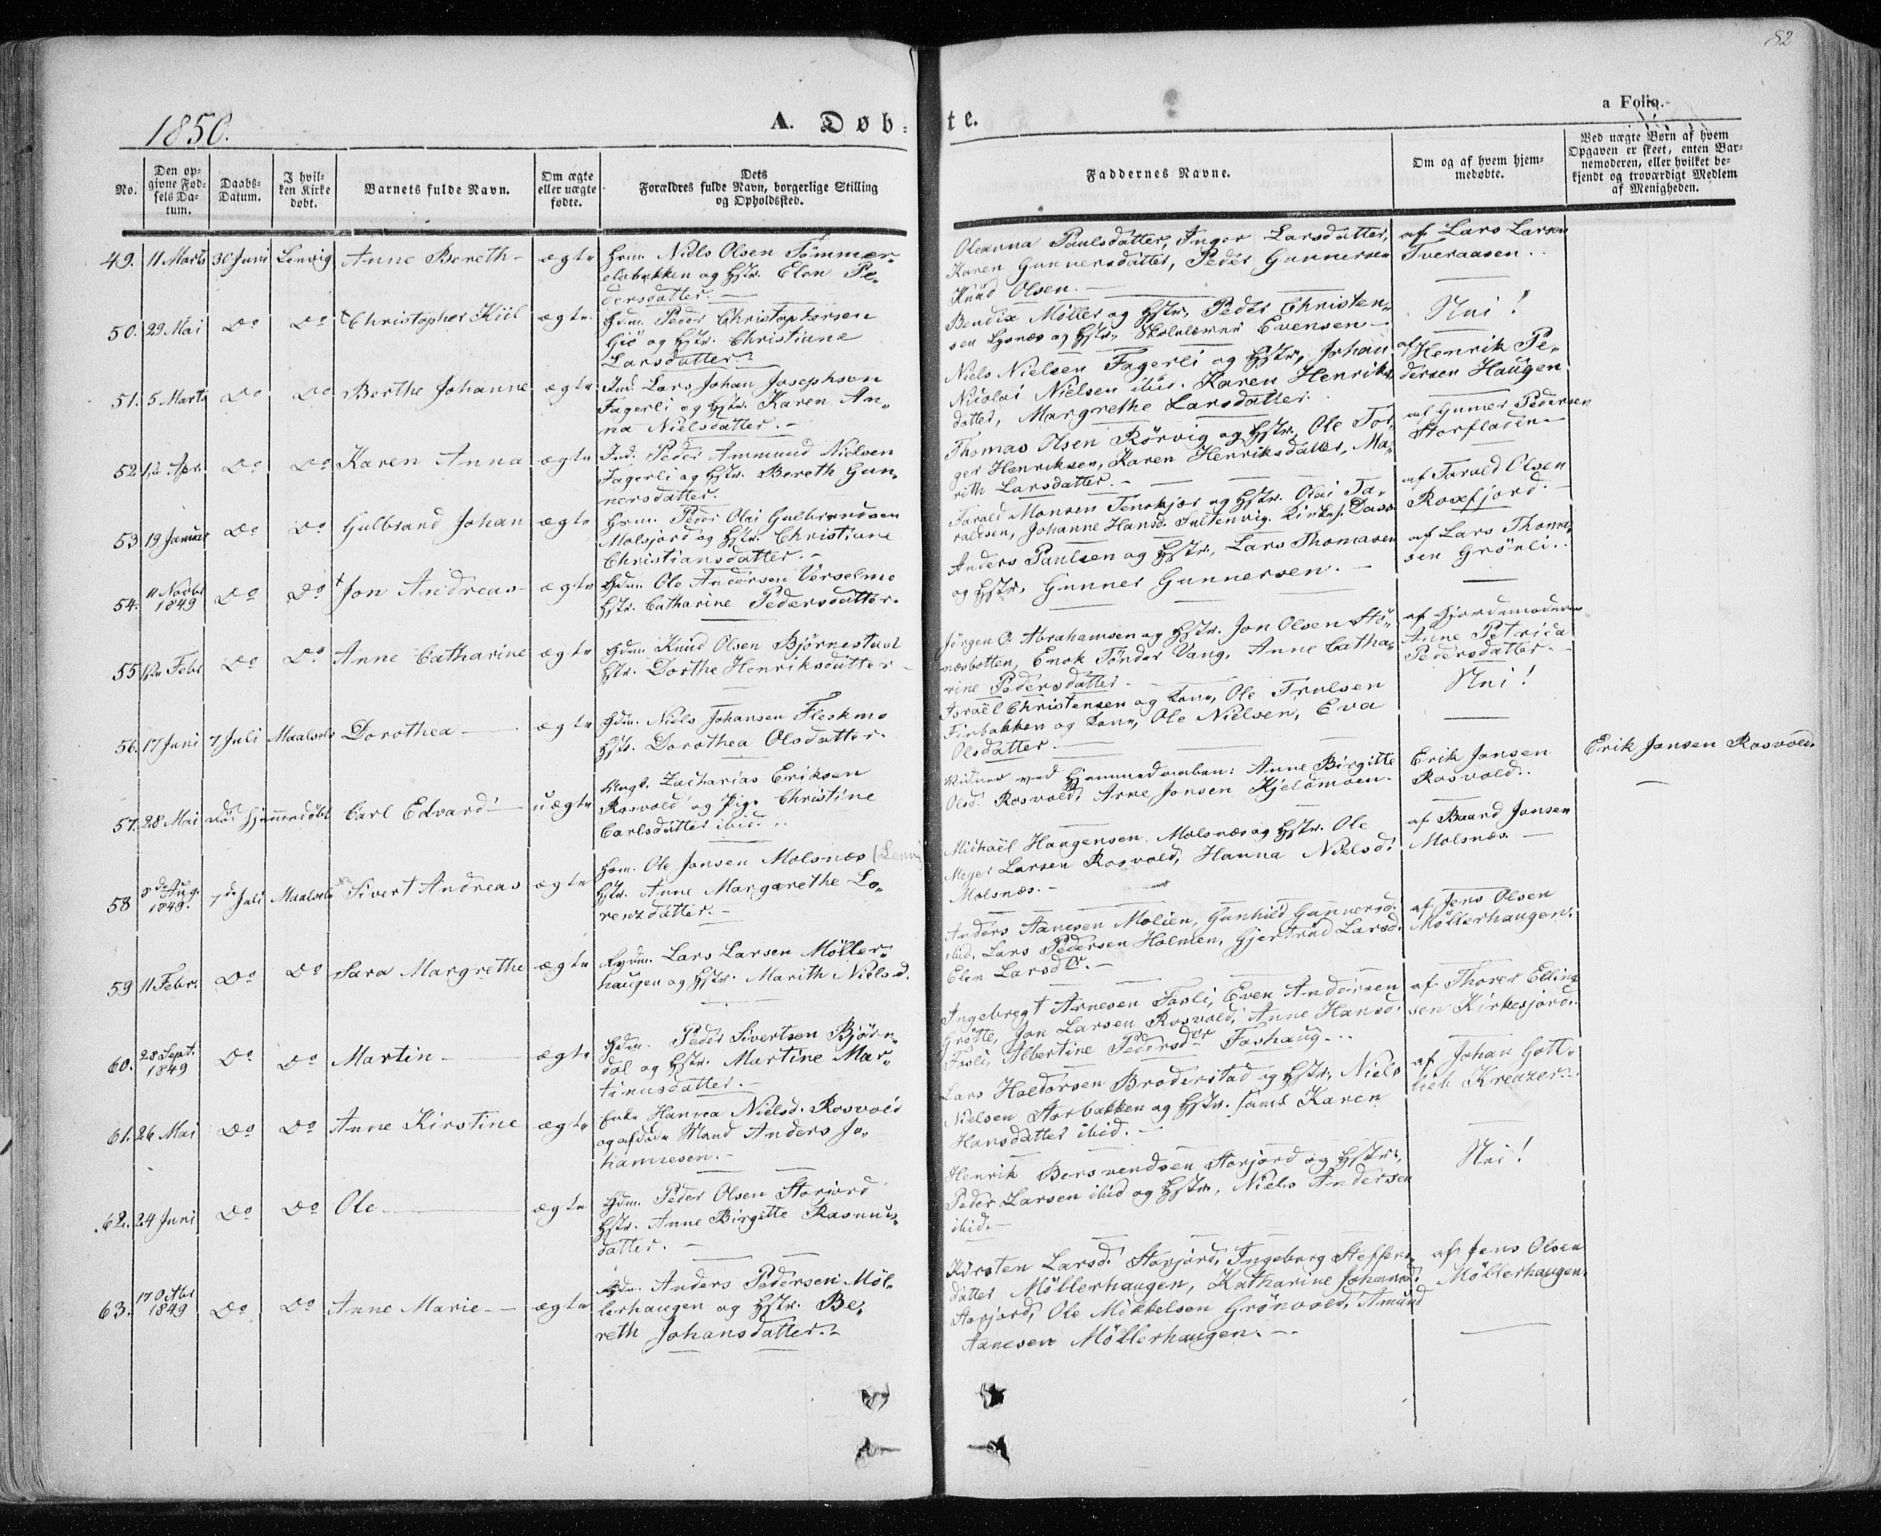 82
1850.
A. Døb-
te.
a Folio.
No.
Den opgivne Fødsels Datum.
Daabs-Datum.
I hvilken Kirke døbt.
Barnets fulde Navn.
Om ægte eller uægte fødte.
Dets Forældres fulde Navn, borgerlige Stilling og Opholdsted.
Faddernes Navne.
Om og af hvem hjemmedøbte.
Ved uægte Børn af hvem Opgaven er skeet, enten Barnemoderen, eller hvilket bekjendt og troværdigt Medlem af Menigheden.
49. 11 Marts 30 Juni Lenvig Anne Bereth ægte
Niels Olsen Tømmer-
elvbakken og Hstr. Elen Pe-
dersdatter.
Oleanna Paulsdatter, Inger Larsdatter,
Karen Gunnersdatter, Peder Gunnersen
Knud Olsen.
af Lars Larsen
Tveraasen.
50. 29 Mai Do Do Christopher Kiil ægte
Hdm. Peder Christophersen
Giö og Hstr. Christiane
Larsdatter.
Bendix Møller og Hstr., Peder Christen-
sen Lysnæs og Hstr., Skolelærer Evensen
Nei!
51. 5 Marts Do Do Berthe Johanne ægte
Ind. Lars Johan Josephsen
Fagerli og Hstr. Karen An-
na Nielsdatter.
Niels Nielsen Fagerli og Hstr., Johan
Nicolai Nielsen ibid. Karen Henriks-
datter, Margrethe Larsdatter
af Henrik Pe-
dersen Haugen
52. 12 Apr. Do Do Karen Anna ægte
Ind. Peder Ammund Nielsen
Fagerli og Hstr. Bereth Gun-
nersdatter.
Thomas Olsen Rörvig og Hstr. Ole Tor-
ger Henriksen, Karen Henriksdatter, Ma-
rith Larsdatter.
af Gunner Pedersen
Storfladen
53 19 Januar Do Do Gulbrand Johan ægte
Hdm. Peder Olai Gulbrandsen
Malsjord og Hstr. Christiane
Christiansdatter.
Tarald Monsen Tenskjær og Hstr. Olai Ta-
raldsen, Johanne Hansd. Sultenvig.
af Tarald Olsen
Rossfjord.
54. 11 Novbr 1849 Do Do Jon Andreas ægte
Hdm. Ole Andersen Vesselmo
Hstr. Catharine Pedersdatter.
Anders Paulsen og Hstr., Lars Thomasen
og Hstr, Gunner Gunnersen.
af Lars Thoma-
sen Grönli.
55 12 Febr Do Do Anne Catharine ægte
Hdm. Knud Olsen Bjørnestad
Hstr. Dorthe Henriksdatter
Jörgen O. Abrahamsen og Hstr. Jon Olsen Stö-
næsbotten, Enok Tönder Vang, Anne Catha-
rine Pedersdatter
af Gjordemoderen
Anne Petrica
Pedersdatter.
56. 17 Juni 7 Juli Maalselv Dorothea ægte
Hdm. Niels Johansen Fleskmo
Hstr. Dorothea Olsdatter.
Israël Christensen og Kone, Ole Trulsen
Firbakken og Kone, Ole Nielsen, Eva
Olsdatter.
Nei!
57. 28 Mai Död hjemmedöbt Carl Edvard uægte
Ungk. Zacharias Eriksen
Rosvold og Pige Christine
Carlsdatter ibid.
Vidner ved Hjemmedaaben: Anne Birgitte
Olsd. Rosvold, Arne Jonsen Kjeldmoen.
Erik Jansen
Rosvold.
Erik Jansen Rosvold.
58 Aug. 1849. 7de Juli Maalselv Sivert Andreas ægte
Hdm. Ole Jonsen Molsnæs (Lenvig)
Hstr. Anne Margarethe Lo-
renzdatter.
Michaël Haagensen Molsnæs og Hstr. Ole
Meyer Larsen Rosvold, Hanna Nielsd.
Molsnæs.
af Baard Jonsen
Molsnæs.
59 11 Febr. Do Do Sara Margrethe ægte
Lars Larsen Møller-
haugen og Hstr. Marith Nielsd.
Anders Aanesen Moleen, Gunhild Gunnersd.
ibid, Lars Pedersen Holmen, Gjertrud Larsd.
Elen Larsdtr.
af Jens Olsen
Möllerhaugen.
60. 28 Sept. 1849 Do Do Martin ægte
Hdm. Peder Sivertsen Bjørn-
dal og Hstr. Martine Mar-
tinusdatter.
Ingebregt Arnesen Fosli, Even Andersen
Grötte, Jon Larsen Rosvold, Anne Hansd.
Fosli, Albertine Pedersdtr Foshaug.
af Thorer Elling-
sen Kirkesjord.
61. 26 Mai Do Do Anne Kirstine ægte
Enke Hanna Nielsd. Rosvold
og afdøde Mand Anders Jo-
hannesen.
Lars Haldorsen Broderstad og Hstr., Niels
Nielsen Storbakken og Hstr. samt Karen
Hansdatter ibid.
af Johan Gott-
lieb Kreuzer.
62. 24 Juni Do Do Ole ægte
Hdm. Peder Olsen Storjord
Hstr. Anne Birgitte Rasmus-
datter.
Henrik Bersvendsen Storjord og Hstr.,
Peder Larsen ibid og Hstr, Niels Andersen
ibid.
Nei!
63. 17 Octbr 1849 Do Do Anne Marie ægte
Anders Pedersen Møl-
lerhaugen og Hstr. Be-
reth Johansdatter.
Kirsten Larsd. Storjord, Ingeborg Steffens-
datter Möllerhaugen, Katharine Johansd.
Storjord, Ole Mikkelsen Grönvold, Amund
Aanesen Möllerhaugen.
af Jens Olsen
Möllerhaugen.